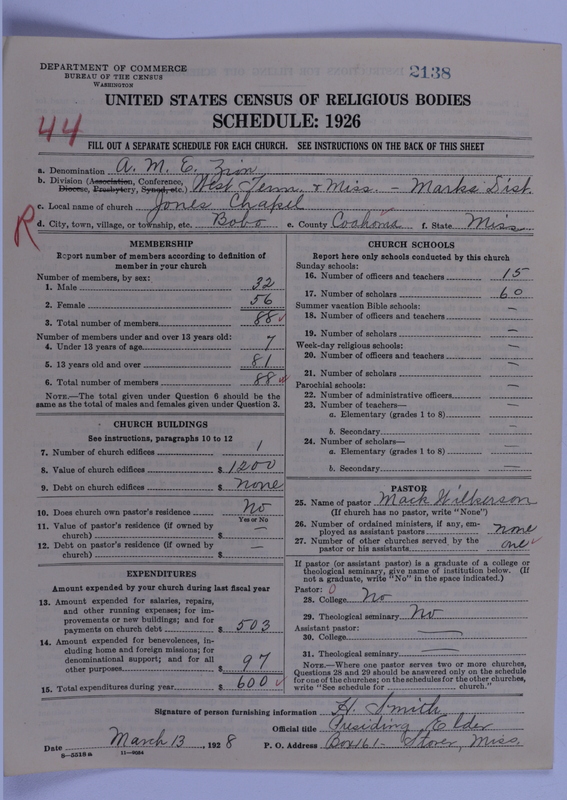 DEPARTMENT OF COMMERCE
BUREAU OF THE CENSUS
WASHINGTON
2138
UNITED STATES CENSUS OF RELIGIOUS BODIES
SCHEDULE: 1926
44
FILL OUT A SEPARATE SCHEDULE FOR EACH CHURCH. SEE INSTRUCTIONS ON THE BACK OF THIS SHEET
a. Denomination A. M. E. Zion
b. Division (Association, Conference, Diocese, Presbytery, Synod, etc.) West Tenn. & Miss. - Marks Dist.
c. Local name of church Jones Chapel
R
d. City, town, village, or township, etc. Bobo e. County Coahoma f. State Miss
MEMBERSHIP
Report number of members according to definition of
member in your church
Number of members, by sex:
1. Male 32
2. Female 56
3. Total number of members 88
Number of members under and over 13 years old:
4. Under 13 years of age 7
5. 13 years old and over 81
6. Total number of members 88
NOTE.—The total given under Question 6 should be the
same as the total of males and females given under Question 3.
CHURCH BUILDINGS
See instructions, paragraphs 10 to 12
7. Number of church edifices 1
8. Value of church edifices $ 1200
9. Debt on church edifices $ none
10. Does church own pastor's residence No
Yes or No
11. Value of pastor's residence (if owned by
church) $ —
12. Debt on pastor's residence (if owned by
church) $ —
EXPENDITURES
Amount expended by your church during last fiscal year
13. Amount expended for salaries, repairs,
and other running expenses; for im-
provements or new buildings; and for
payments on church debt $ 503
14. Amount expended for benevolences, in-
cluding home and foreign missions; for
denominational support; and for all
other purposes $ 97
15. Total expenditures during year $ 600
CHURCH SCHOOLS
Report here only schools conducted by this church
Sunday schools:
16. Number of officers and teachers 15
17. Number of scholars 60
Summer vacation Bible schools:
18. Number of officers and teachers —
19. Number of scholars —
Week-day religious schools:
20. Number of officers and teachers —
21. Number of scholars —
Parochial schools:
22. Number of administrative officers —
23. Number of teachers—
a. Elementary (grades 1 to 8) —
b. Secondary —
24. Number of scholars—
a. Elementary (grades 1 to 8) —
b. Secondary —
PASTOR
25. Name of pastor Mack Wilkerson
(If church has no pastor, write "None")
26. Number of ordained ministers, if any, em-
ployed as assistant pastors none
27. Number of other churches served by the
pastor or his assistants one
If pastor (or assistant pastor) is a graduate of a college or
theological seminary, give name of institution below. (If
not a graduate, write "No" in the space indicated.)
Pastor: 0
28. College No
29. Theological seminary No
Assistant pastor:
30. College —
31. Theological seminary —
NOTE.—Where one pastor serves two or more churches,
Questions 28 and 29 should be answered only on the schedule
for one of the churches; on the schedules for the other churches,
write "See schedule for church."
Signature of person furnishing information H. Smith
Official title Presiding Elder
Date March 13, 1928 P. O. Address Box 161 - Stover, Miss.
8—5518a 11—9034